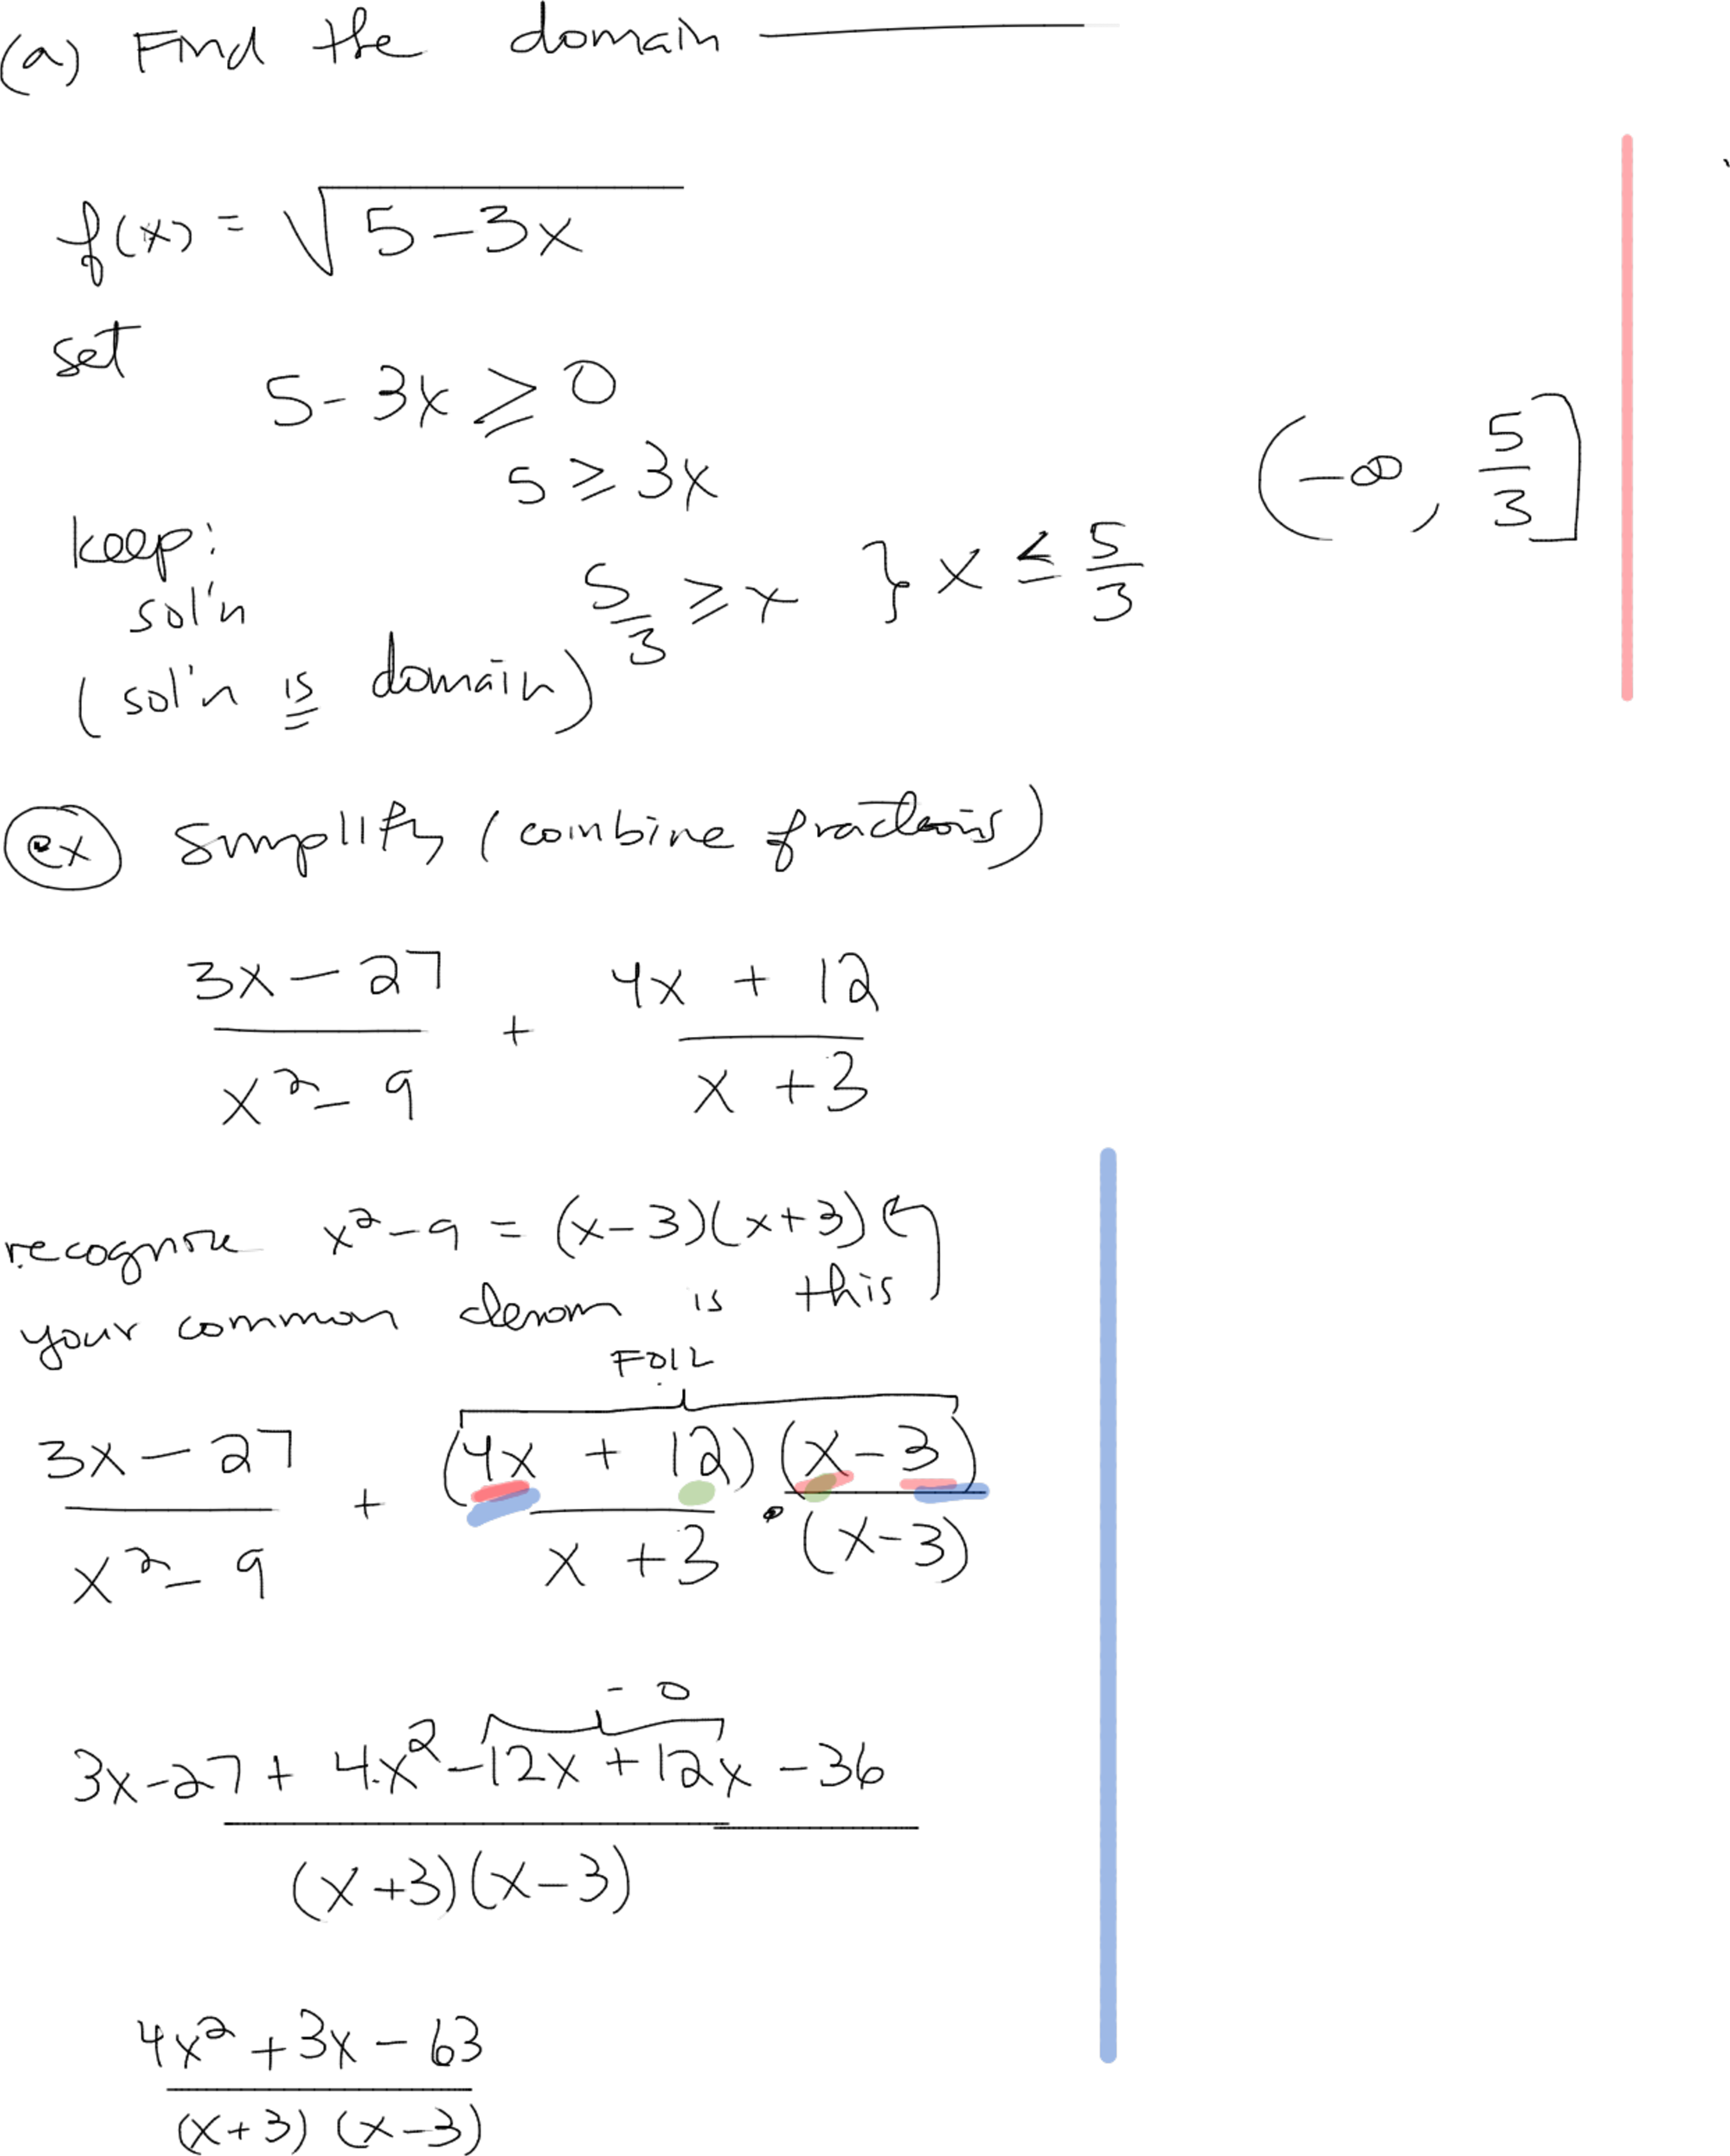 (a) Find the domain
f(x) = √(5-3x)
set
5 - 3x ≥ 0
5 ≥ 3x
(-∞, 5/3]
keep:
sol'n
5/3 ≥ x } x ≤ 5/3
(sol'n is domain)
ex simplify (combine fractions)
(3x - 27)/(x² - 9) + (4x + 12)/(x + 3)
recognize x² - 9 = (x-3)(x+3)
your common denom is this
FOIL
(3x - 27)/(x² - 9) + (4x + 12)/(x + 3) · (x - 3)/(x-3)
- 0
(3x - 27 + 4x² - 12x + 12x - 36)/((x+3)(x-3))
(4x² + 3x - 63)/((x+3)(x-3))